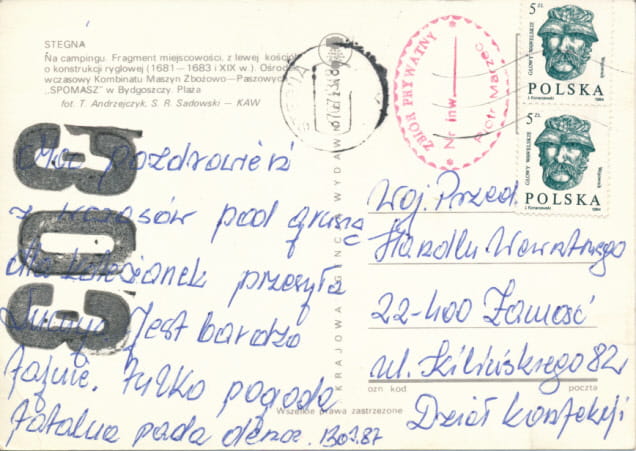 STEGNA
Na campingu. Fragment miejscowości, z lewej kościół
o konstrukcji ryglowej (1681—1683 i XIX w.). Ośrodek
wczasowy Kombinatu Maszyn Zbożowo—Paszowych
„SPOMASZ" w Bydgoszczy. Plaża
fot. T. Andrzejczyk, S. R. Sadowski — KAW
303
Moc pozdrowień
z wczasów pod gruszą
dla koleżanek przesyła
Jest bardzo
fajnie. Tylko pogoda
fatalna pada deszcz.
KRAJOWA AGENCJA WYDAW
Wszelkie prawa zastrzeżone
ZBIÓR PRYWATNY
Nr inw.
Piotr Marzec
5 ZŁ
GŁOWY WAWELSKIE
POLSKA
1984
5 ZŁ
GŁOWY WAWELSKIE
POLSKA
1984
Woj. Przed.
Handlu Wewnętrznego
22-400 Zamość
ul. Kilińskiego 82
ozn kod poczta
Dział konfekcji